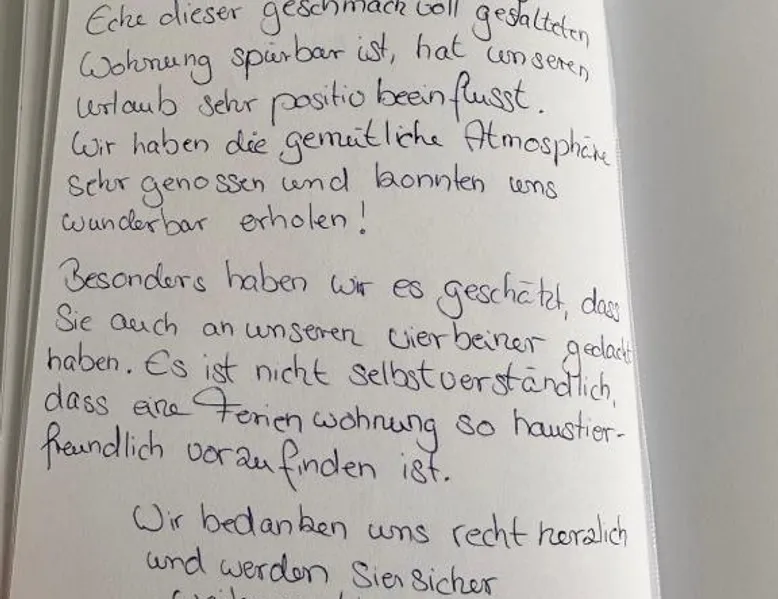 Ecke dieser geschmackvoll gestalteten
Wohnung spürbar ist, hat unseren
Urlaub sehr positiv beeinflusst.
Wir haben die gemütliche Atmosphäre
sehr genossen und konnten uns
wunderbar erholen!
Besonders haben wir es geschätzt, dass
Sie auch an unseren Vierbeiner gedacht
haben. Es ist nicht selbstverständlich,
dass eine Ferienwohnung so haustier-
freundlich vorzufinden ist.
Wir bedanken uns recht herzlich
und werden Sie sicher